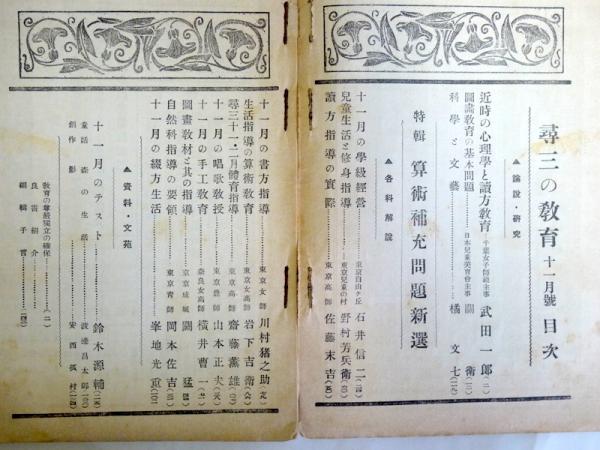 尋三の教育 十一月號 目次
▲論說・研究
近時の心理學と讀方敎育 千葉女子師範主事 武田一郎
圖畫敎育の基本問題 日本兒童美育會主事 關衛
科學と文藝 橘文七
特輯 算術補充問題新選
▲各科解說
十一月の學級經營 東京自由ヶ丘 石井信二
兒童生活と修身指導 東京兒童の村 野村芳兵衛
讀方指導の實際 東京高師 佐藤末吉
十一月の書方指導 東京女師 川村猪之助
生活指導の算術敎育 東京女高師 岩下吉衛
尋三十一・二月體育指導 東京高師 齋藤薰雄
十一月の唱歌敎授 東京豊師 山本正夫
十一月の手工敎育 奈良女高師 橫井曹一
圖畫敎材と其の指導 東京成城 關猛
自然科指導の要領 東京青師 岡本佐吉
十一月の綴方生活 峯地光重
▲資料・文苑
十一月のテスト 鈴木源輔
童話 森の生活 渡邊昌太郎
創作 影 安西孤村
敎育の尊嚴獨立の確保
良書紹介
編輯子言